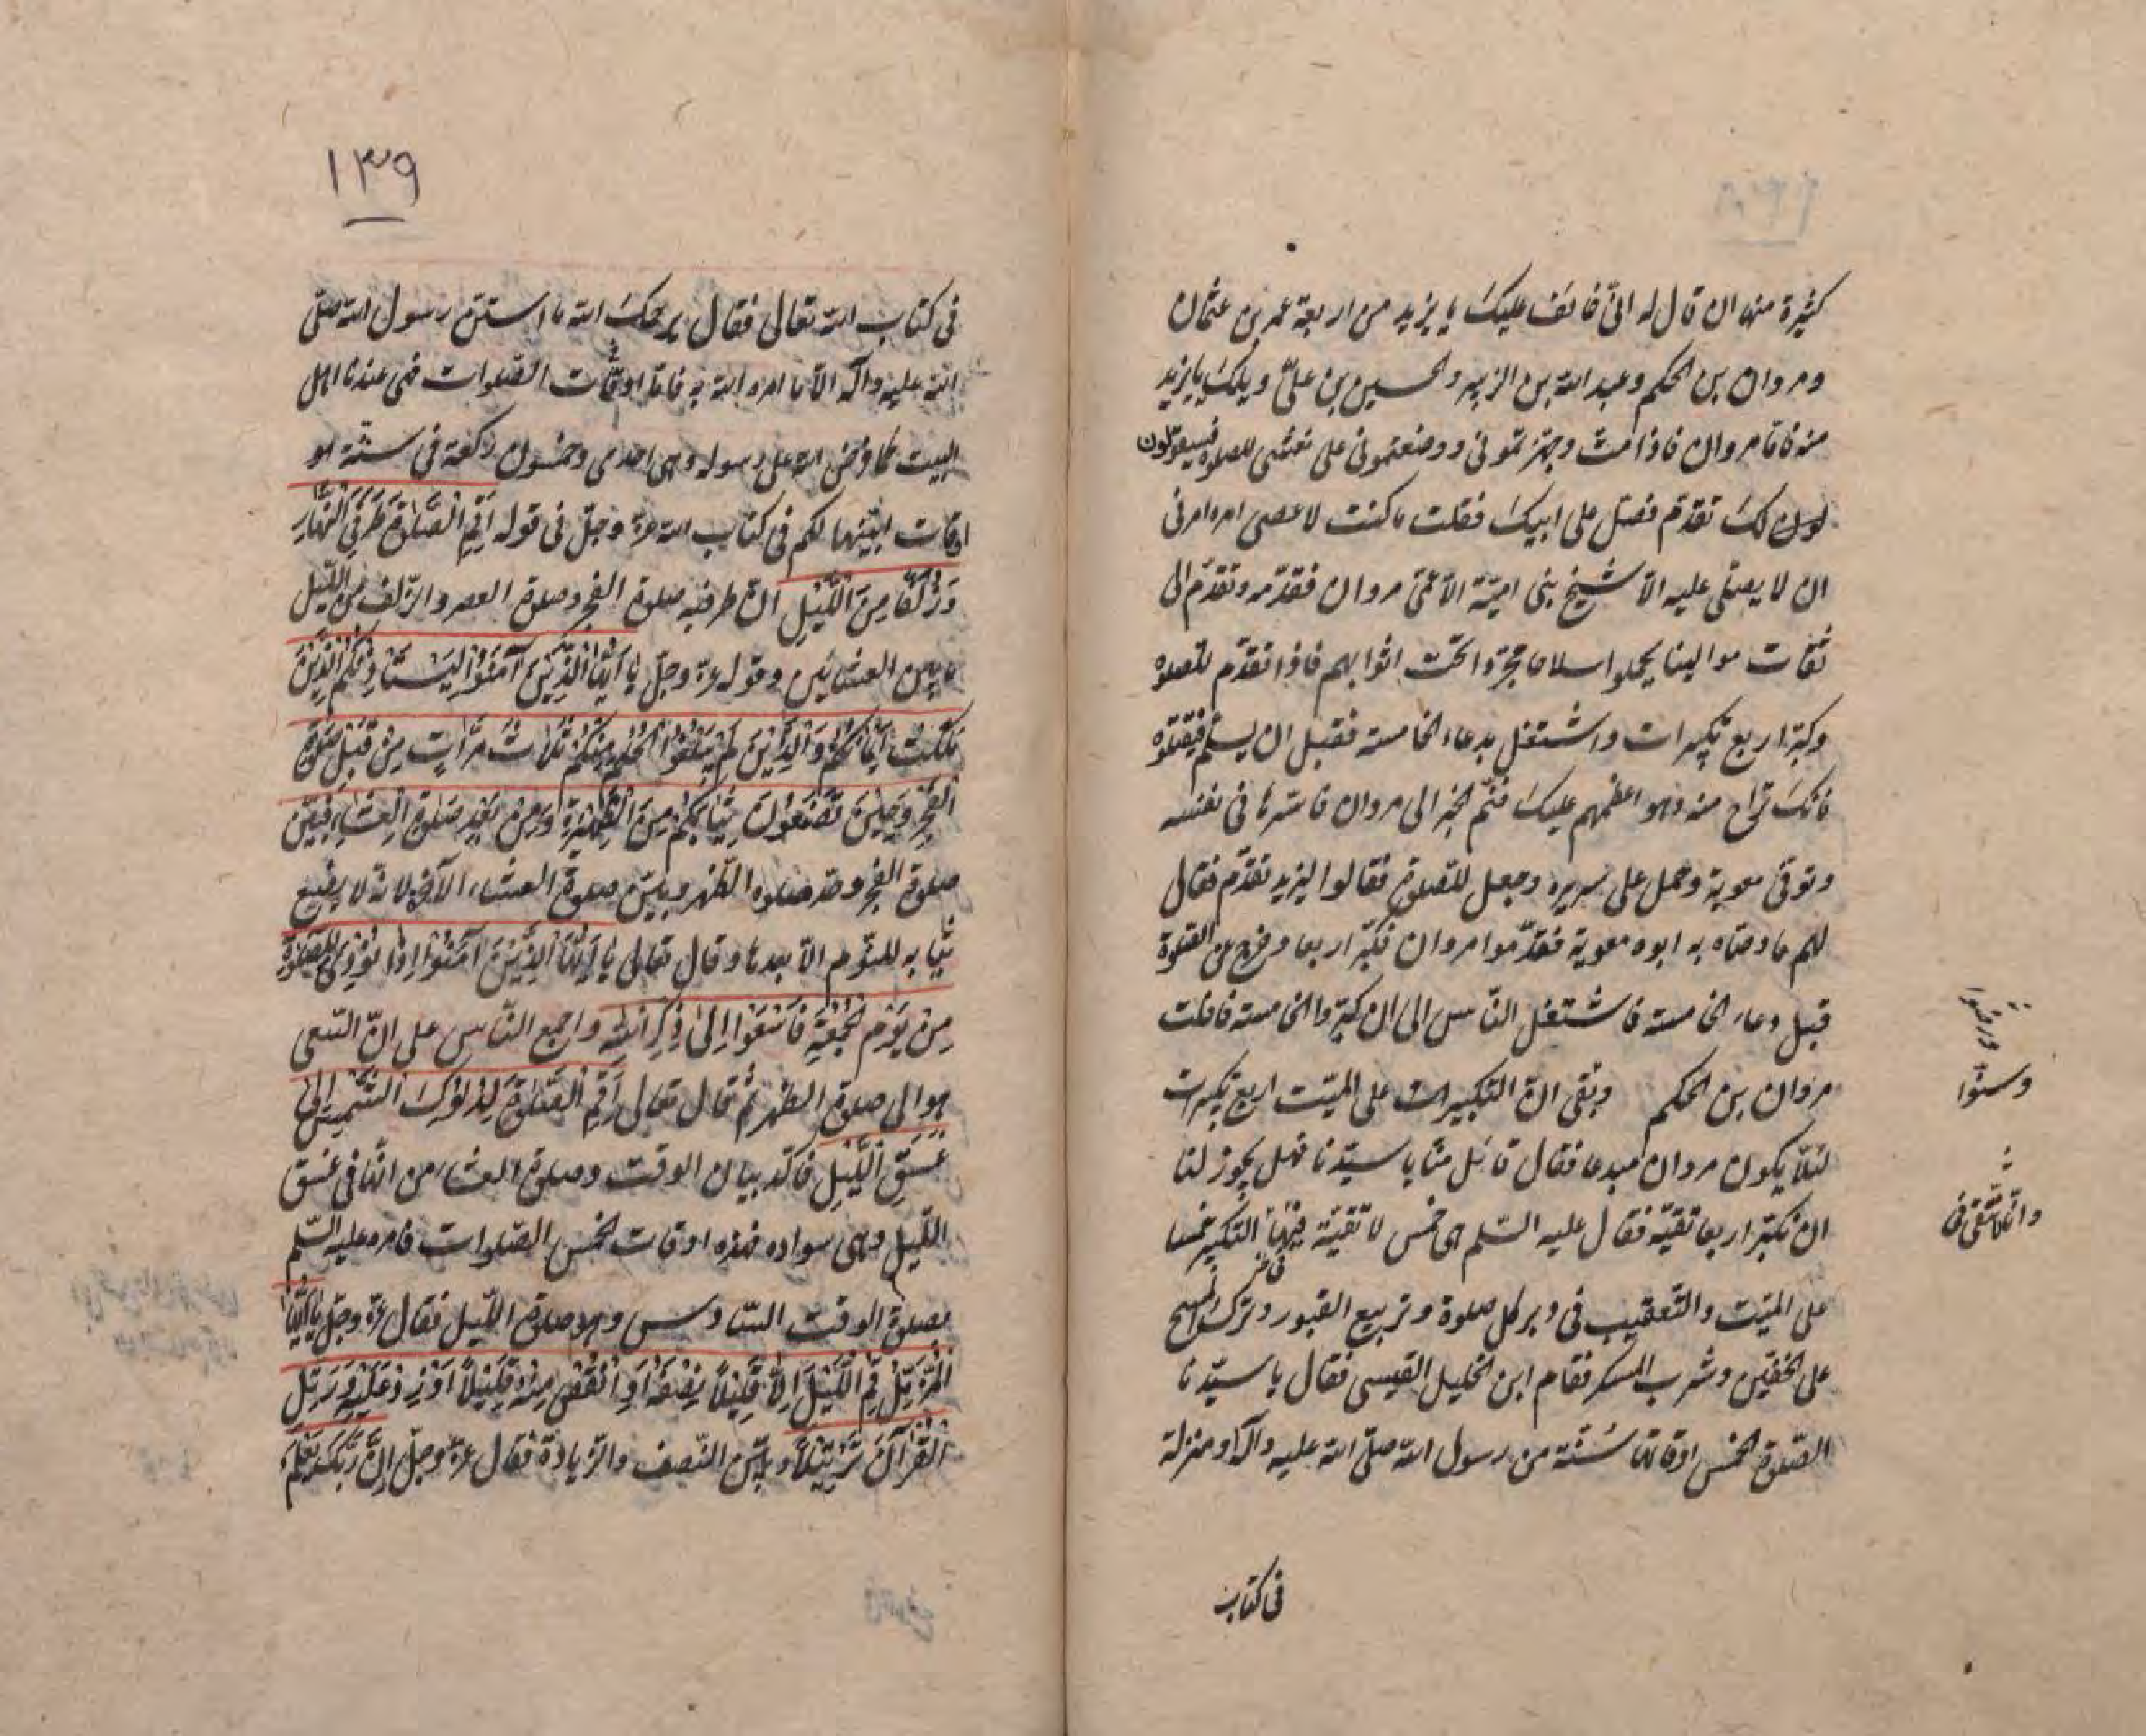 كثيرة منها ان قال له انّى خائف عليك يا يزيد من اربعة عمر بن عثمان
ومروان بن الحكم وعبد الله بن الزبير والحسين بن علىّ ويلك يا يزيد
منه فاما مروان فاذا مت وجهزتمونى ووضعتمونى على نعشى للصلوة فسيقولون
لك تقدّم فصلّ على ابيك فقلت ما كنت لاعصى امره امرنى
ان لا يصلّى عليه الّا شيخ بنى اميّة الّا عمّى مروان فقدّمه وتقدّم الى
ثقات موالينا يحملوا سلاحا مجردا تحت اثوابهم فاذا تقدّم للصلوة
وكبّر اربع تكبيرات واشتغل بدعاء الخامسة فقبل ان يسلّم فيقتلوه
فانك تراح منه وهو اعظمهم عليك فنمّ الخبر الى مروان فاسترها فى نفسه
وتوفّى معوية وحمل على سريره وجعل للصلوة فقالوا ليزيد تقدّم فقال
لهم ما وصّاه به ابوه معوية فقدّموا مروان فكبّر اربعا وخرج عن الصلوة
قبل دعاء الخامسة فاشتغل الناس الى ان كبّروا الخامسة فافلت
مروان بن الحكم وبقى انّ التكبيرات على الميّت اربع تكبيرات
لئلّا يكون مروان مبدعا فقال قائل منّا يا سيّدنا فهل يجوز لنا
ان نكبّر اربعا تقيّة فقال عليه السّلم هى خمس لا تقيّة فيها التكبير خمسا
على الميّت والتّعقيب فى دبر كل صلوة وتربيع القبور وترك المسح
على الخفّين وشرب المسكر فقام ابن الخليل القيسى فقال يا سيّدنا
الصّلوة الخمس اوقاتها سُنّة من رسول الله صلّى الله عليه وآله او منزلة
وسنّوا
فى كتاب
١٣٩
فى كتاب الله تعالى فقال يرحمك الله ما استنّ رسول الله صلّى
الله عليه وآله الّا ما امره الله به فامّا اوقات الصّلوات فهى عندنا اهل
البيت كما فرض الله على رسوله وهى احدى وخمسون ركعة فى ستّة
اوقات ابيّنها لكم فى كتاب الله عزّ وجلّ فى قوله اَقِمِ الصَّلوٰةَ طَرَفَىِ النَّهَارِ
وَزُلَفًا مِنَ اللَّيْلِ انّ طرفيه صلوة الفجر وصلوة العصر والزّلف من اللّيل
ما بين العشائين وقوله عزّ وجلّ يَا اَيُّهَا الَّذِينَ آمَنُوا لِيَسْتَاْذِنْكُمُ الَّذِينَ
مَلَكَتْ اَيْمَانُكُمْ وَالَّذِينَ لَمْ يَبْلُغُوا الْحُلُمَ مِنْكُمْ ثَلَاثَ مَرَّاتٍ مِنْ قَبْلِ صَلوٰةِ
الْفَجْرِ وَحِينَ تَضَعُونَ ثِيَابَكُمْ مِنَ الظَّهِيرَةِ وَمِنْ بَعْدِ صَلوٰةِ الْعِشَاءِ فبيّن
صلوة الفجر وحد صلوة الظّهر وبيّن صلوة العشاء الآخرة لانه لا يضع
ثيابه للنّوم الّا بعدها وقال تعالى يَا اَيُّهَا الَّذِينَ آمَنُوا اِذَا نُودِىَ لِلصَّلوٰةِ
مِنْ يَوْمِ الْجُمُعَةِ فَاسْعَوْا اِلٰى ذِكْرِ اللّٰهِ واجمع النّاس على انّ السّعى
هو الى صلوة الظهر ثُمّ قال تعالى اَقِمِ الصَّلوٰةَ لِدُلُوكِ الشَّمْسِ اِلىٰ
غَسَقِ اللَّيْلِ فاكّد بيان الوقت وصلوة العشاء من انّها فى غسق
اللّيل وهى سواده فهذه اوقات الخمس الصّلوات فامره عليه السّلم
بصلوة الوقت السّادس وهو صلوة اللّيل فقال عزّ وجلّ يَا اَيُّهَا
الْمُزَّمِّلُ قُمِ اللَّيْلَ اِلَّا قَلِيلًا نِصْفَهُ اَوِ انْقُصْ مِنْهُ قَلِيلًا اَوْ زِدْ عَلَيْهِ وَرَتِّلِ
الْقُرْآنَ تَرْتِيلًا وبيّن النّصف والزّيادة فقال عزّ وجلّ اِنَّ رَبَّكَ يَعْلَمُ